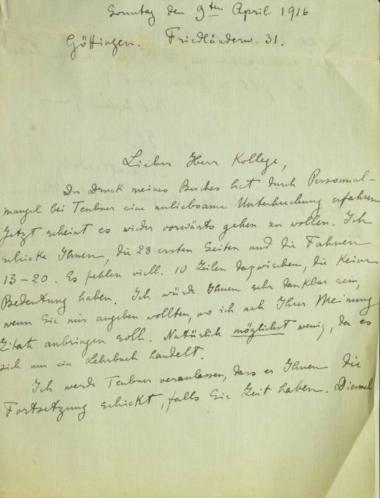 Sonntag den 9ten April 1916
Göttingen. Friedländerw. 31.
Lieber Herr Kollege,
Der Druck meines Buches hat durch Personal-
mangel bei Teubner eine unliebsame Unterbrechung erfahren
Jetzt scheint es wieder vorwärts gehen zu wollen. Ich
schicke Ihnen, die 28 ersten Seiten und die Fahnen
13-20. Es fehlen viell. 10 Zeilen dazwischen, die keine
Bedeutung haben. Ich würde Ihnen sehr dankbar sein,
wenn Sie mir angeben wollten, wo ich nach Ihrer Meinung
Zitate anbringen soll. Natürlich möglichst wenig, da es
sich um ein Lehrbuch handelt.
Ich werde Teubner veranlassen, dass er Ihnen die
Fortsetzung schickt, falls Sie Zeit haben. Diesmal